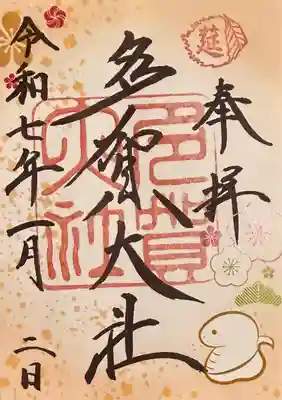 莚
奉拝
多賀大社
多賀
大社
令和七年一月二日